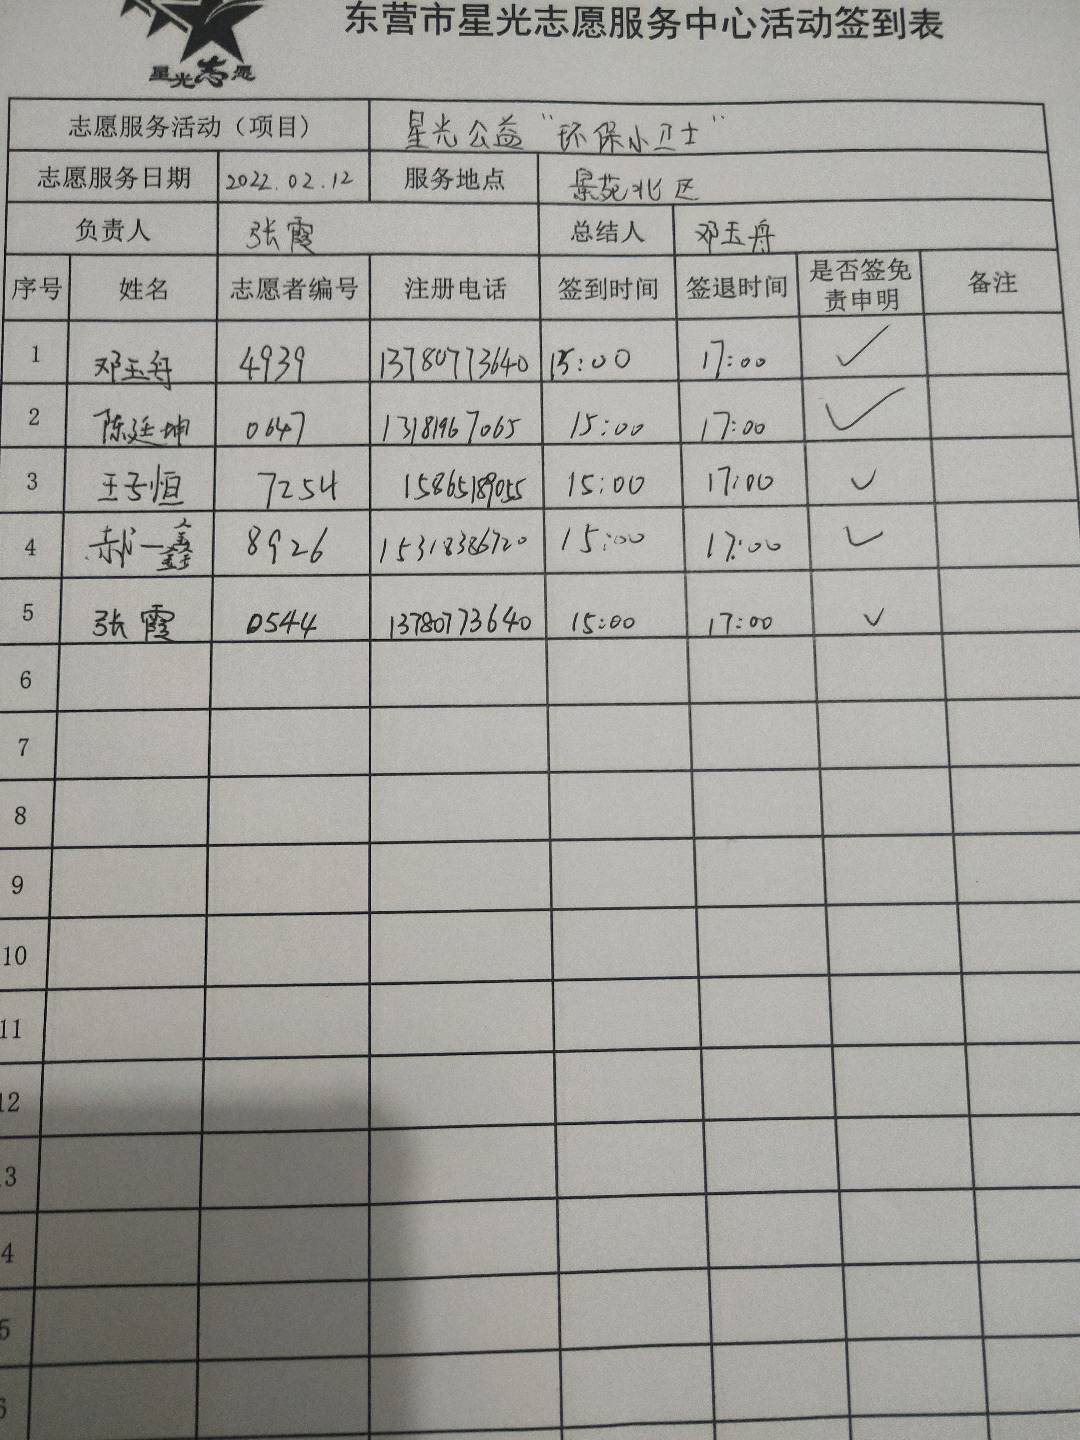 东营市星光志愿服务中心活动签到表
星光志愿
志愿服务活动（项目） 星光公益“环保小卫士”
志愿服务日期 2022.02.12 服务地点 景苑北区
负责人 张霞 总结人 邓玉舟
序号 姓名 志愿者编号 注册电话 签到时间 签退时间 是否签免责申明 备注
1 邓玉舟 4939 13780773640 15:00 17:00 ✓
2 陈廷坤 0647 13181967065 15:00 17:00 ✓
3 王子恒 7254 15865189055 15:00 17:00 ✓
4 郝一鑫 8926 15318386720 15:00 17:00 ✓
5 张霞 0544 13780773640 15:00 17:00 ✓
6
7
8
9
10
11
12
3
4
5
6